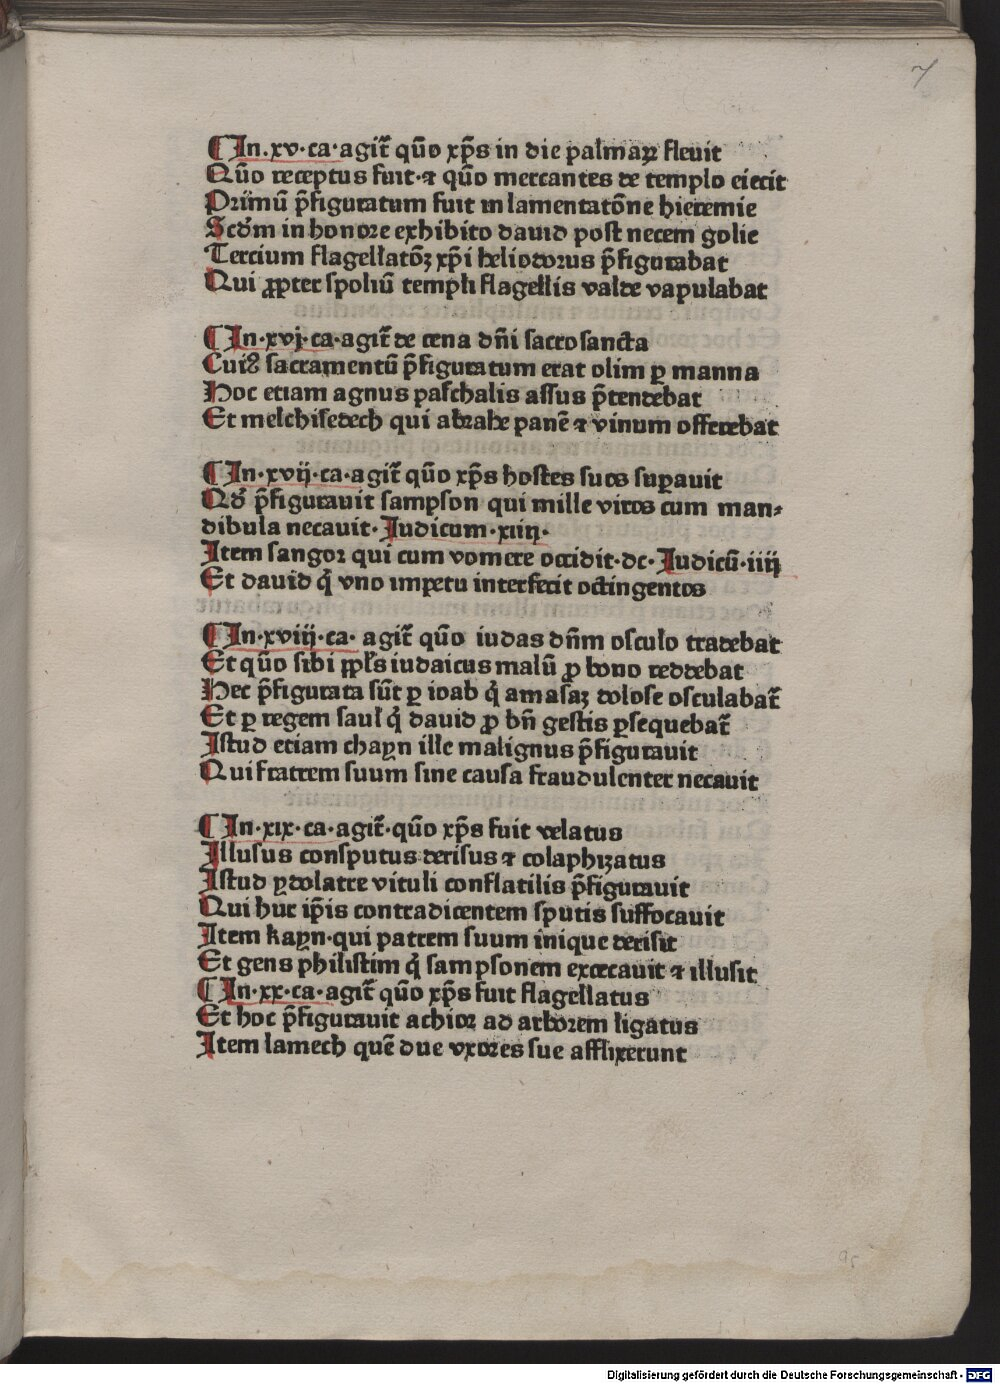 7
¶ In .xv. ca. agit᷑ quō xp̄s in die palmaꝝ fleuit
Quō receptus fuit. ⁊ quō mercantes de templo eiecit
Primū p̄figuratum fuit in lamentatōne hieremie
Scḋm in honore exhibito dauid post necem golie
Tercium flagellatōꝫ xp̄i heliodorus p̄figurabat
Qui ꝓpter spoliū templi flagellis valde vapulabat
¶ In .xvj. ca. agit᷑ de cena dn̄i sacrosancta
Cuiꝰ sacramentū p̄figuratum erat olim ꝑ manna
Hoc etiam agnus paschalis assus p̄tendebat
Et melchisedech qui abrahe panē ⁊ vinum offerebat
¶ In .xvij. ca. agit᷑ quō xp̄s hostes suos suꝑauit
Qđ p̄figurauit sampson qui mille viros cum man-
dibula necauit. Judicum .xiiij.
Item sangor qui cum vomere occidit. dc. Judicū .iiij
Et dauid q̇ vno impetu interfecit octingentos
¶ In .xviij. ca. agit᷑ quō iudas dn̄m osculo tradebat
Et quō sibi ꝓpl̄s iudaicus malū ꝓ bono reddebat
Hec p̄figurata sūt ꝑ ioab q̇ amasaꝫ dolose osculabat᷑
Et ꝑ regem saul q̇ dauid ꝓ bn̄ gestis ꝑsequebat᷑
Istud etiam chayn ille malignus p̄figurauit
Qui fratrem suum sine causa fraudulenter necauit
¶ In .xix. ca. agit᷑. quō xp̄s fuit velatus
Illusus consputus derisus ⁊ colaphizatus
Istud ydolatre vituli conflatilis p̄figurauit
Qui hur ip̄is contradicentem sputis suffocauit
Item kayn. qui patrem suum inique derisit
Et gens philistim q̇ sampsonem excecauit ⁊ illusit
¶ In .xx. ca. agit᷑ quō xp̄s fuit flagellatus
Et hoc p̄figurauit achior ad arborem ligatus
Item lamech quē due vxores sue afflixerunt
Digitalisierung gefördert durch die Deutsche Forschungsgemeinschaft - DFG